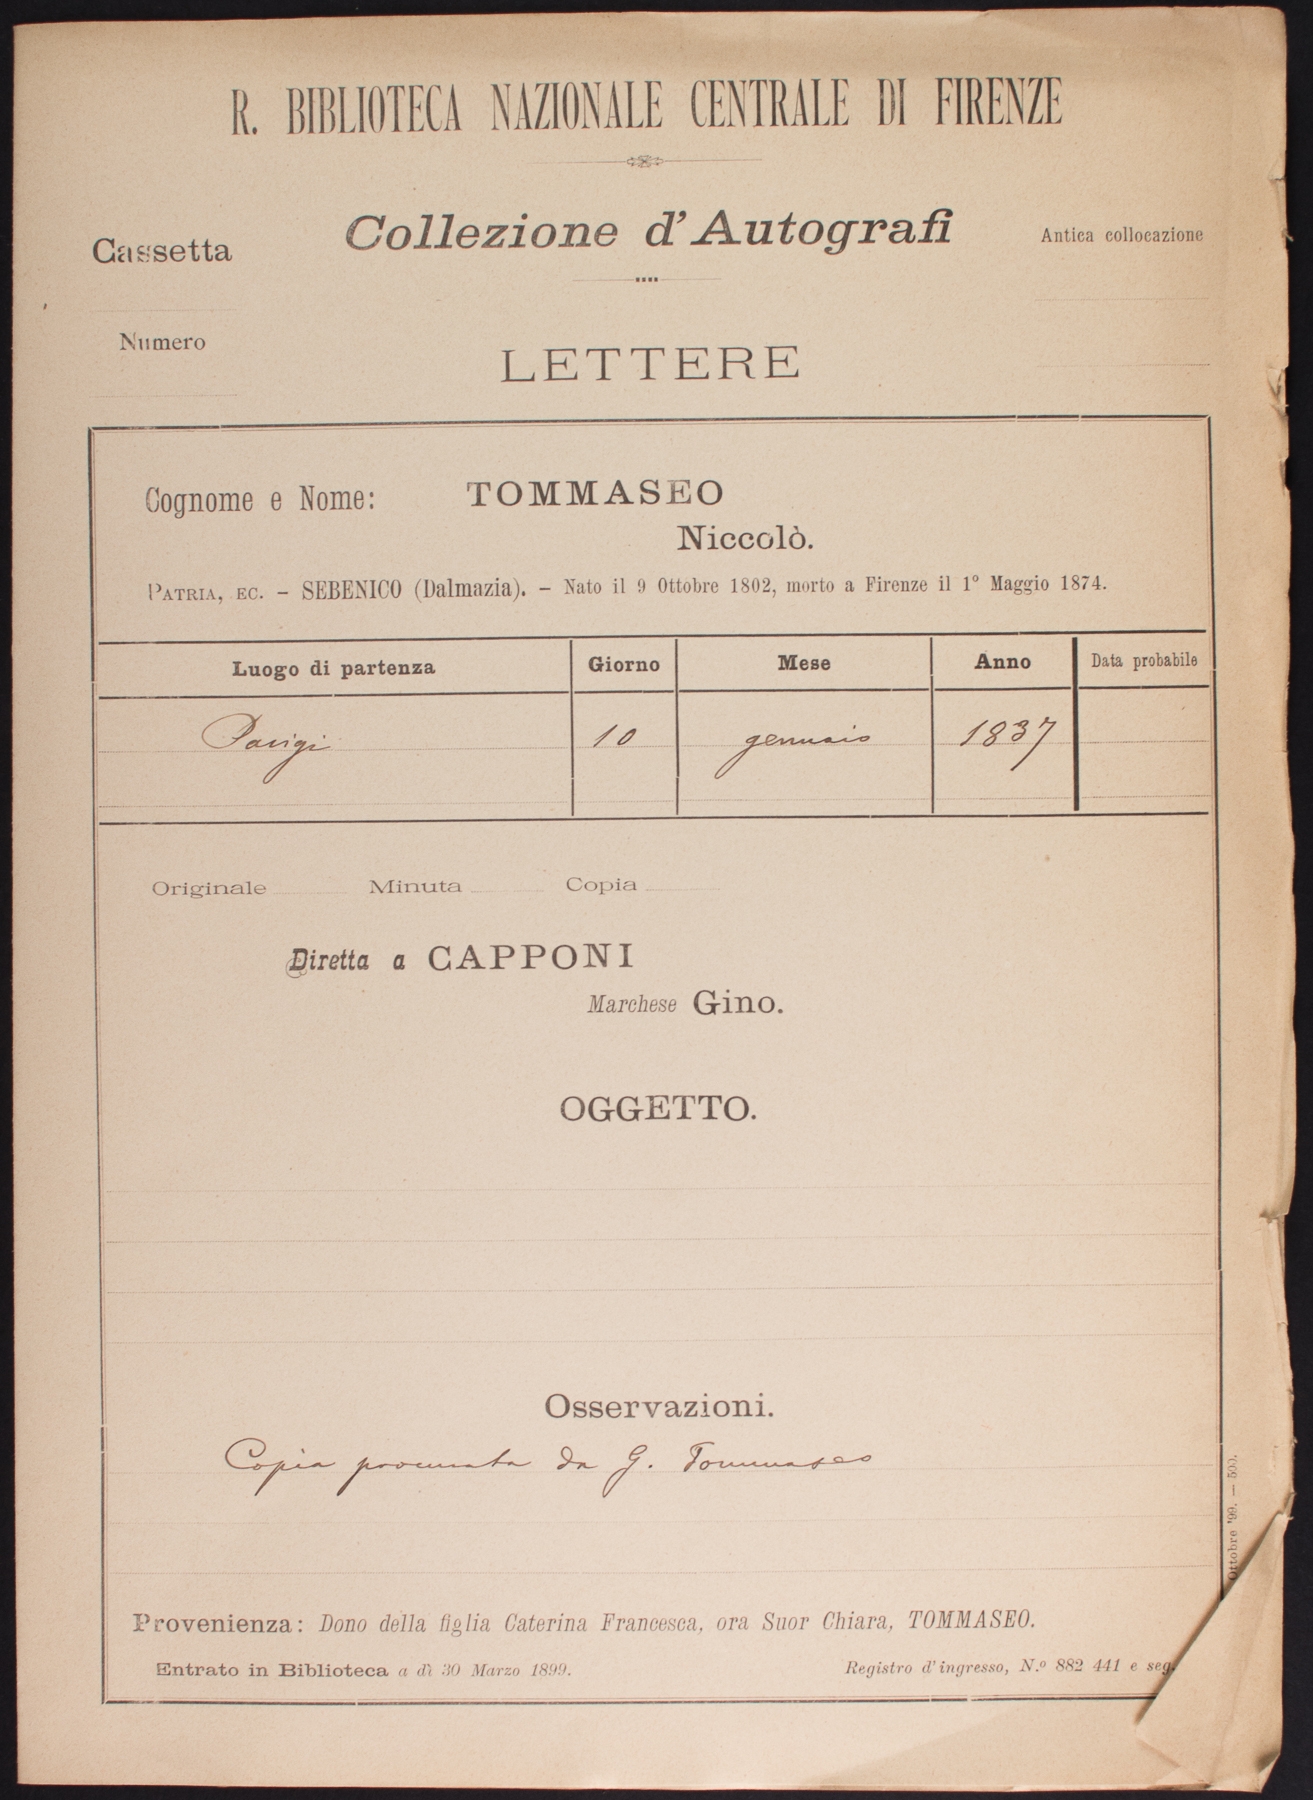 R. BIBLIOTECA NAZIONALE CENTRALE DI FIRENZE
Cassetta
Collezione d'Autografi
Antica collocazione
Numero
LETTERE
Cognome e Nome: TOMMASEO
Niccolò.
PATRIA, EC. – SEBENICO (Dalmazia). – Nato il 9 Ottobre 1802, morto a Firenze il 1º Maggio 1874.
Luogo di partenza Giorno Mese Anno Data probabile
Parigi 10 gennaio 1837
Originale Minuta Copia
Diretta a CAPPONI
Marchese Gino.
OGGETTO.
Osservazioni.
Copia procurata da G. Tommaseo
Provenienza: Dono della figlia Caterina Francesca, ora Suor Chiara, TOMMASEO.
Entrato in Biblioteca a dì 30 Marzo 1899.
Registro d'ingresso, N.º 882 441 e seg.
Ottobre '99. — 500.